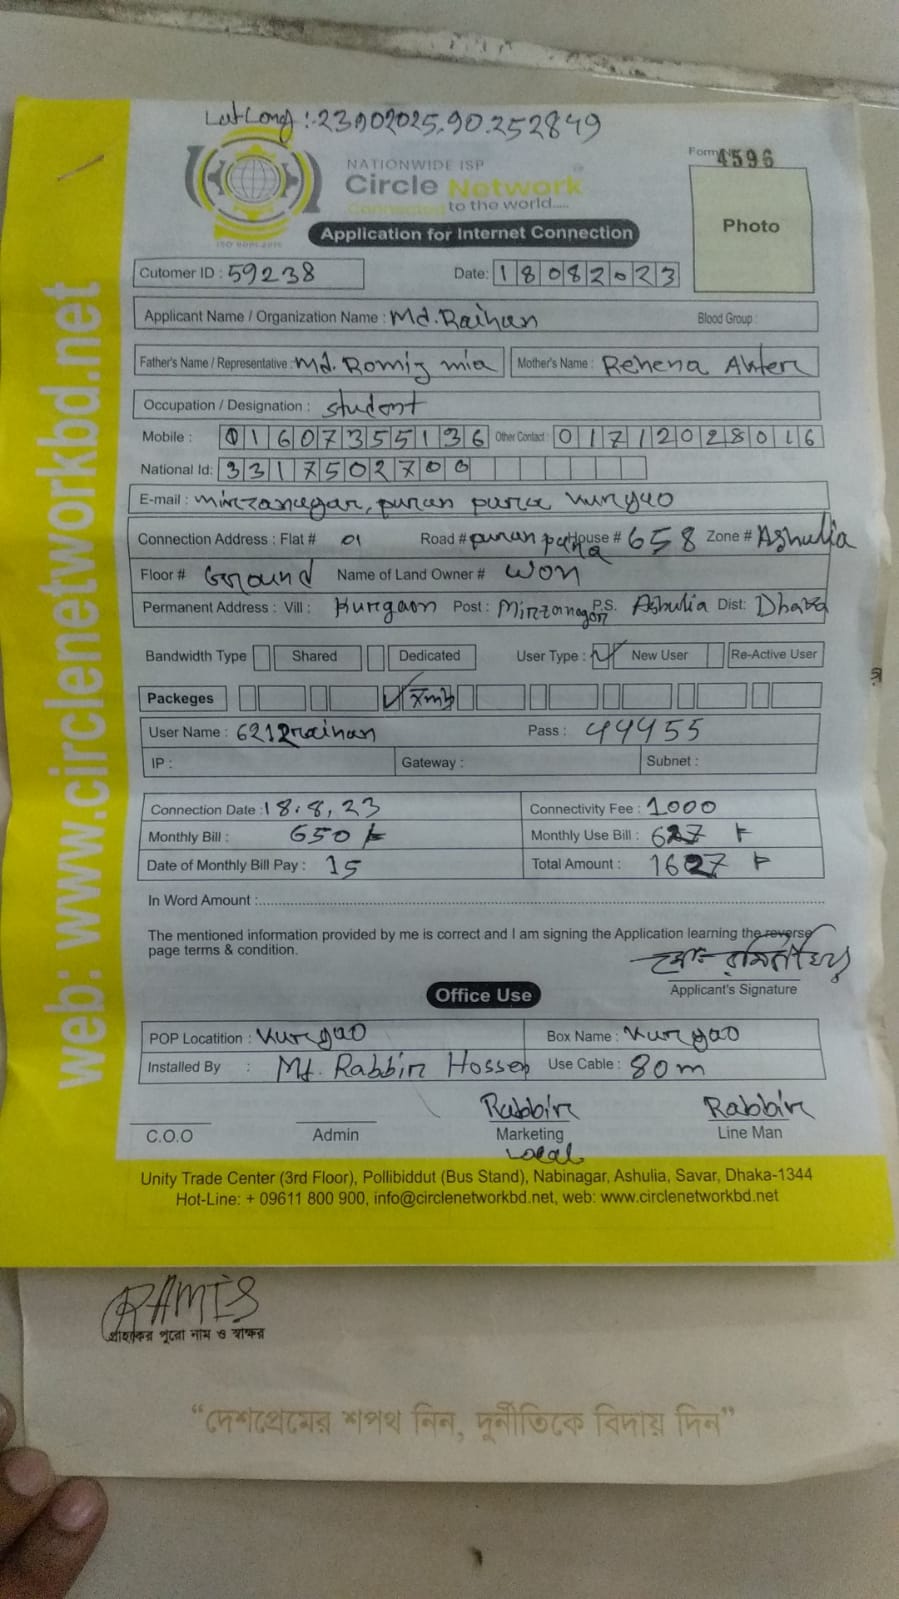 Lat Long :-23.902025,90.252849
NATIONWIDE ISP
Form No 4596
Circle Network
Connected to the world.....
ISO 9001:2015
Photo
Application for Internet Connection
Cutomer ID : 59238 Date: 18082023
Applicant Name / Organization Name : Md.Raihan Blood Group :
Father's Name / Representative : Md. Romiz mia Mother's Name : Rehena Akter
Occupation / Designation : student
Mobile : 01607355136 Other Contact : 01712028016
National Id: 3317502700
E-mail : Mirzanagar, puran para kurgao
Connection Address : Flat # 01 Road # puran para House # 658 Zone # Ashulia
Floor # Ground Name of Land Owner # won
Permanent Address : Vill : Kurgaon Post : Mirzanagar P.S. Ashulia Dist: Dhaka
Bandwidth Type Shared Dedicated User Type : New User Re-Active User
Packeges
User Name : 6212raihan Pass : 44455
IP : Gateway : Subnet :
Connection Date : 18.8,23 Connectivity Fee : 1000
Monthly Bill : 650 Monthly Use Bill : 627
Date of Monthly Bill Pay : 15 Total Amount : 1627
In Word Amount :
The mentioned information provided by me is correct and I am signing the Application learning the reverse
page terms & condition.
Applicant's Signature
Office Use
POP Locatition : Kurgao Box Name : Kurgao
Installed By : Md. Rabbir Hossen Use Cable : 80m
Rabbir Rabbir
C.O.O Admin Marketing Line Man
Local
Unity Trade Center (3rd Floor), Pollibiddut (Bus Stand), Nabinagar, Ashulia, Savar, Dhaka-1344
Hot-Line: + 09611 800 900, info@circlenetworkbd.net, web: www.circlenetworkbd.net
web: www.circlenetworkbd.net
RAMIS
গ্রাহকের পুরো নাম ও স্বাক্ষর
“দেশপ্রেমের শপথ নিন, দুর্নীতিকে বিদায় দিন”